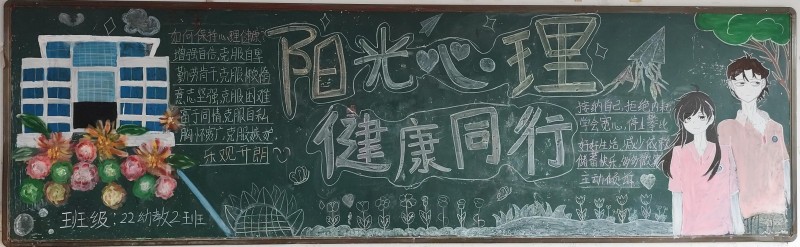 阳光心理
健康同行
如何保持心理健康?
增强自信克服自卑
勤劳肯干克服懒惰
意志坚强克服困难
富于同情克服自私
胸怀宽广克服嫉妒
乐观开朗
接纳自己,拒绝内耗
学会宽心,停止攀比
好好生活,减少
储蓄快乐,
主动倾诉
班级:22幼教2班